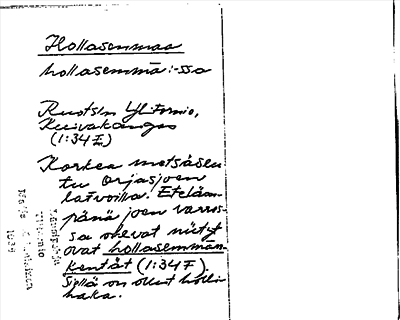 Hollasenmaa
hollasemmā: -ssa
Ruotsin Ylitornio,
Kuivakangas
(1:34 E)
Korkea metsäsen
tu Orjasjoen
latvoilla. Eteläm-
pänä joen varres-
sa olevat niityt
ovat hollasemmän-
kentät (1:34 F).
Siellä on ollut
haka.
1939